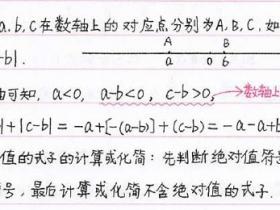 a.b.c在数轴上的对应点分别为A,B,C,如
A B
-b|.
a 0 b
可知, a<0, a-b<0, c-b>0, →数轴上
|+|c-b|=-a+[-(a-b)]+(c-b)=-a-a+b
值的式子的计算或化简:先判断绝对值符
号,最后计算或化简不含绝对值的式子.